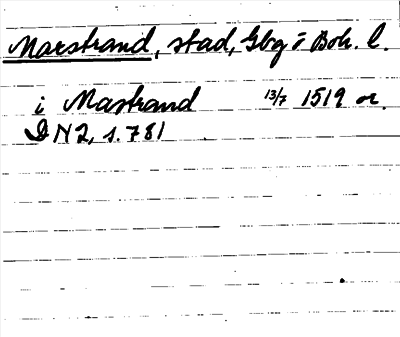 Marstrand, stad, Gbg o Boh. l.
i Mastrand 13/7 1519 or.
DN 2, s. 781